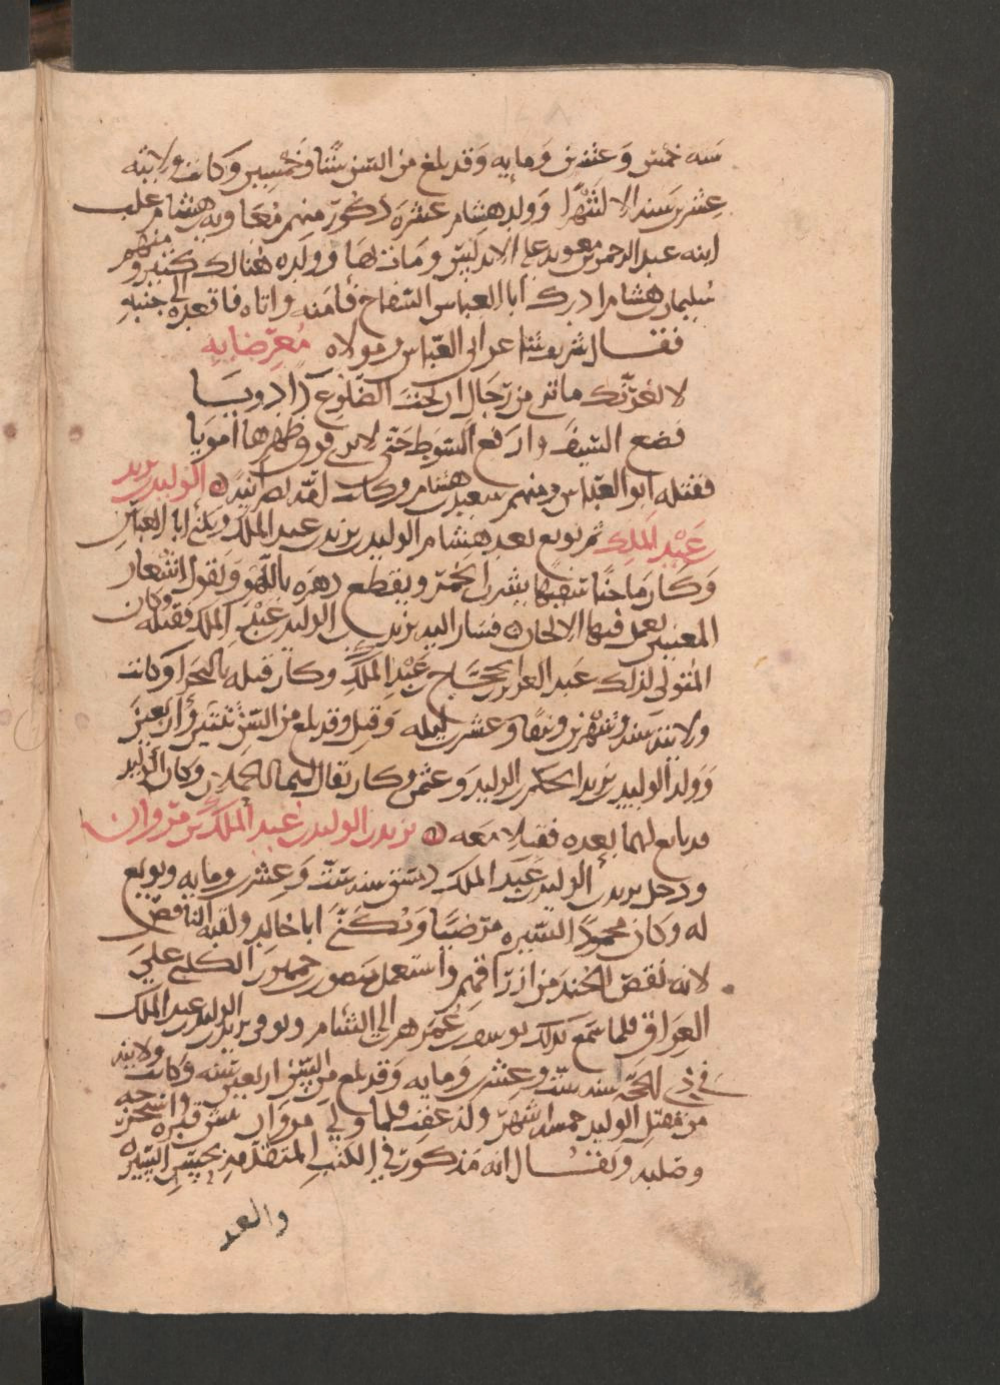 سنه خمس وعشرين ومايه وقد بلغ من السن ستا وخمسين وكانت ولايته
عشرين سنه الا شهرا وولد هشام عشره ذكور منهم معاويه بن هشام غلب
ابنه عبد الرحمن بن معويه على الاندلس ومات بها وولده هنالك كثير ومنهم
سليمان بن هشام ادرك ابا العباس السفاح فامنه واتاه فاقعده الى جنبه
فقال شاعر ابي العباس ومولاه معرضا به
لا يغرنك ما ترى من رجال ان تحت الضلوع دا دويا
فضع السيف وارفع السوط حتى لا ترى فوق ظهرها امويا
فقتله ابو العباس ومنهم سعيد بن هشام وكان الوليد بن يزيد بن
عبد الملك ثم بويع بعد هشام الوليد بن يزيد بن عبد الملك ويكنى ابا العباس
وكان ماجنا سفيها يشرب الخمر ويقطع دهره باللهو ويقول اشعار
المغنين يعمل فيها الالحان فسار اليه يزيد بن الوليد بن عبد الملك فقتله وكان
المتولى لذلك عبد العزيز بن حجاج بن عبد الملك وكان قتله بالبخرا وكانت
ولايته سنه وشهرين ونيفا وعشرين ليله وقيل وقد بلغ من السن ثنتين واربعين
وولد الوليد بن يزيد الحكم بن الوليد وعثمن وكان يقال لهما الحملان وكان الوليد
قد بايع لهما بعده فقتلا معه يزيد بن الوليد بن عبد الملك بن مروان
ودخل يزيد بن الوليد بن عبد الملك دمشق سنه ست وعشرين ومايه وبويع
له وكان محمود السيره مرضيا ويكنى ابا خالد ولقبه الناقص
لانه نقص الجند من ارزاقهم واستعمل منصور بن جمهور الكلبي على
العراق فلما سمع بذلك يوسف بن عمر هرب الى الشام وتوفي يزيد بن الوليد بن عبد الملك
في ذي الحجه سنه ست وعشرين ومايه وقد بلغ من السن اربعين سنه وكانت ولايته
من مقتل الوليد خمسه اشهر وله عقب فلما ولي مروان نبش قبره واستخرجه
وصلبه ويقال انه مذكور في الكتب المتقدمه بحسن السيره
والعد